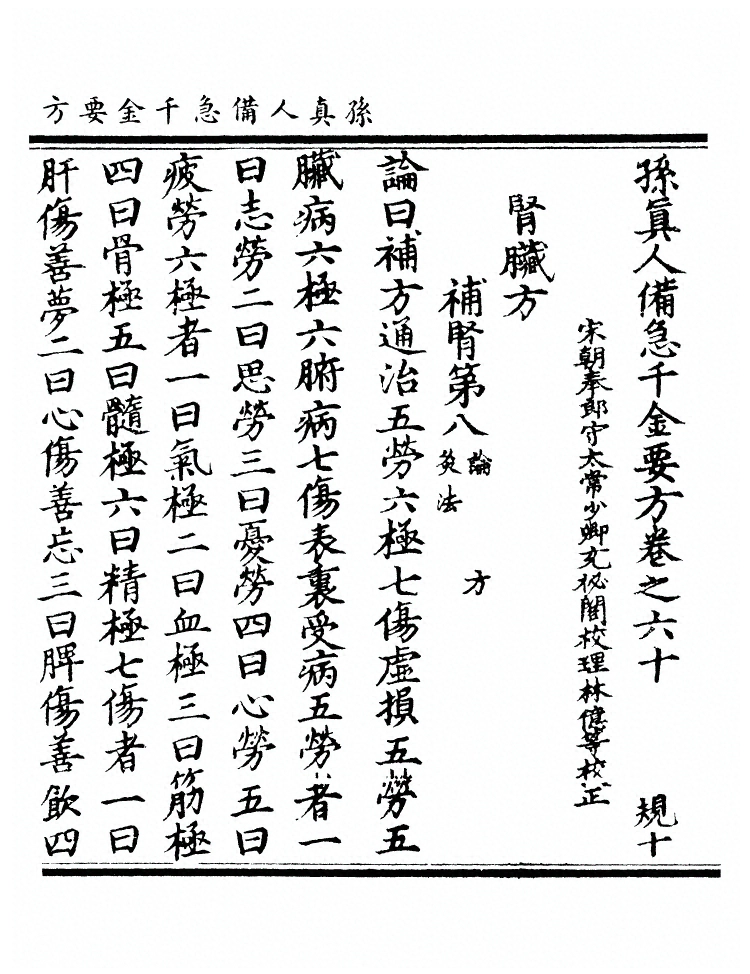 孫真人備急千金要方
孫眞人備急千金要方卷之六十 規十
宋朝奉郎守太常少卿充祕閣校理林億等校正
腎臟方
補腎第八 論 方 灸法
論曰補方通治五勞六極七傷虛損五勞五
臟病六極六腑病七傷表裏受病五勞者一
曰志勞二曰思勞三曰憂勞四曰心勞五曰
疲勞六極者一曰氣極二曰血極三曰筋極
四曰骨極五曰髓極六曰精極七傷者一曰
肝傷善夢二曰心傷善忘三曰脾傷善飲四